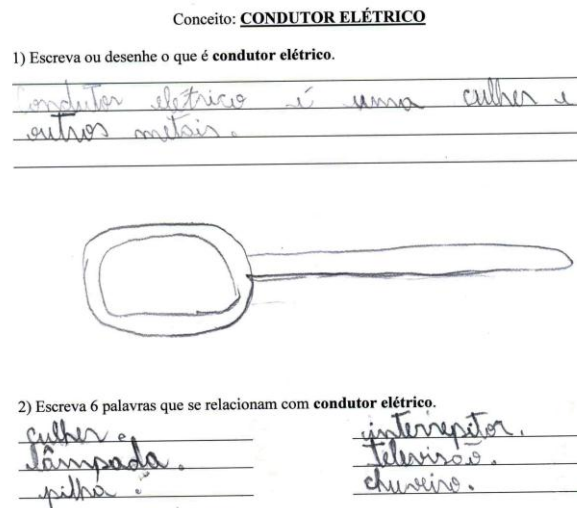 Conceito: CONDUTOR ELÉTRICO
1) Escreva ou desenhe o que é condutor elétrico.
Condutor eletrico é uma culher e
outros metais.
2) Escreva 6 palavras que se relacionam com condutor elétrico.
culher.
lâmpada.
pilha.
interrepitor.
televisão.
chuveiro.